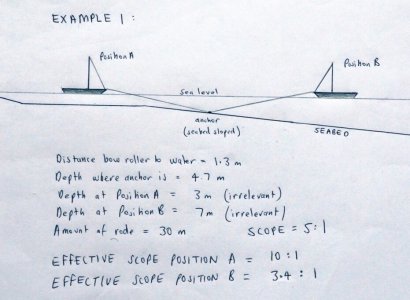 EXAMPLE 1:
Position A
Position B
Sea level
anchor
(seabed sloped)
SEABED
Distance bow roller to water = 1.3 m
Depth where anchor is = 4.7 m
Depth at Position A = 3 m (irrelevant)
Depth at Position B = 7m (irrelevant)
Amount of rode = 30 m SCOPE = 5:1
EFFECTIVE SCOPE POSITION A = 10:1
EFFECTIVE SCOPE POSITION B = 3.4 : 1